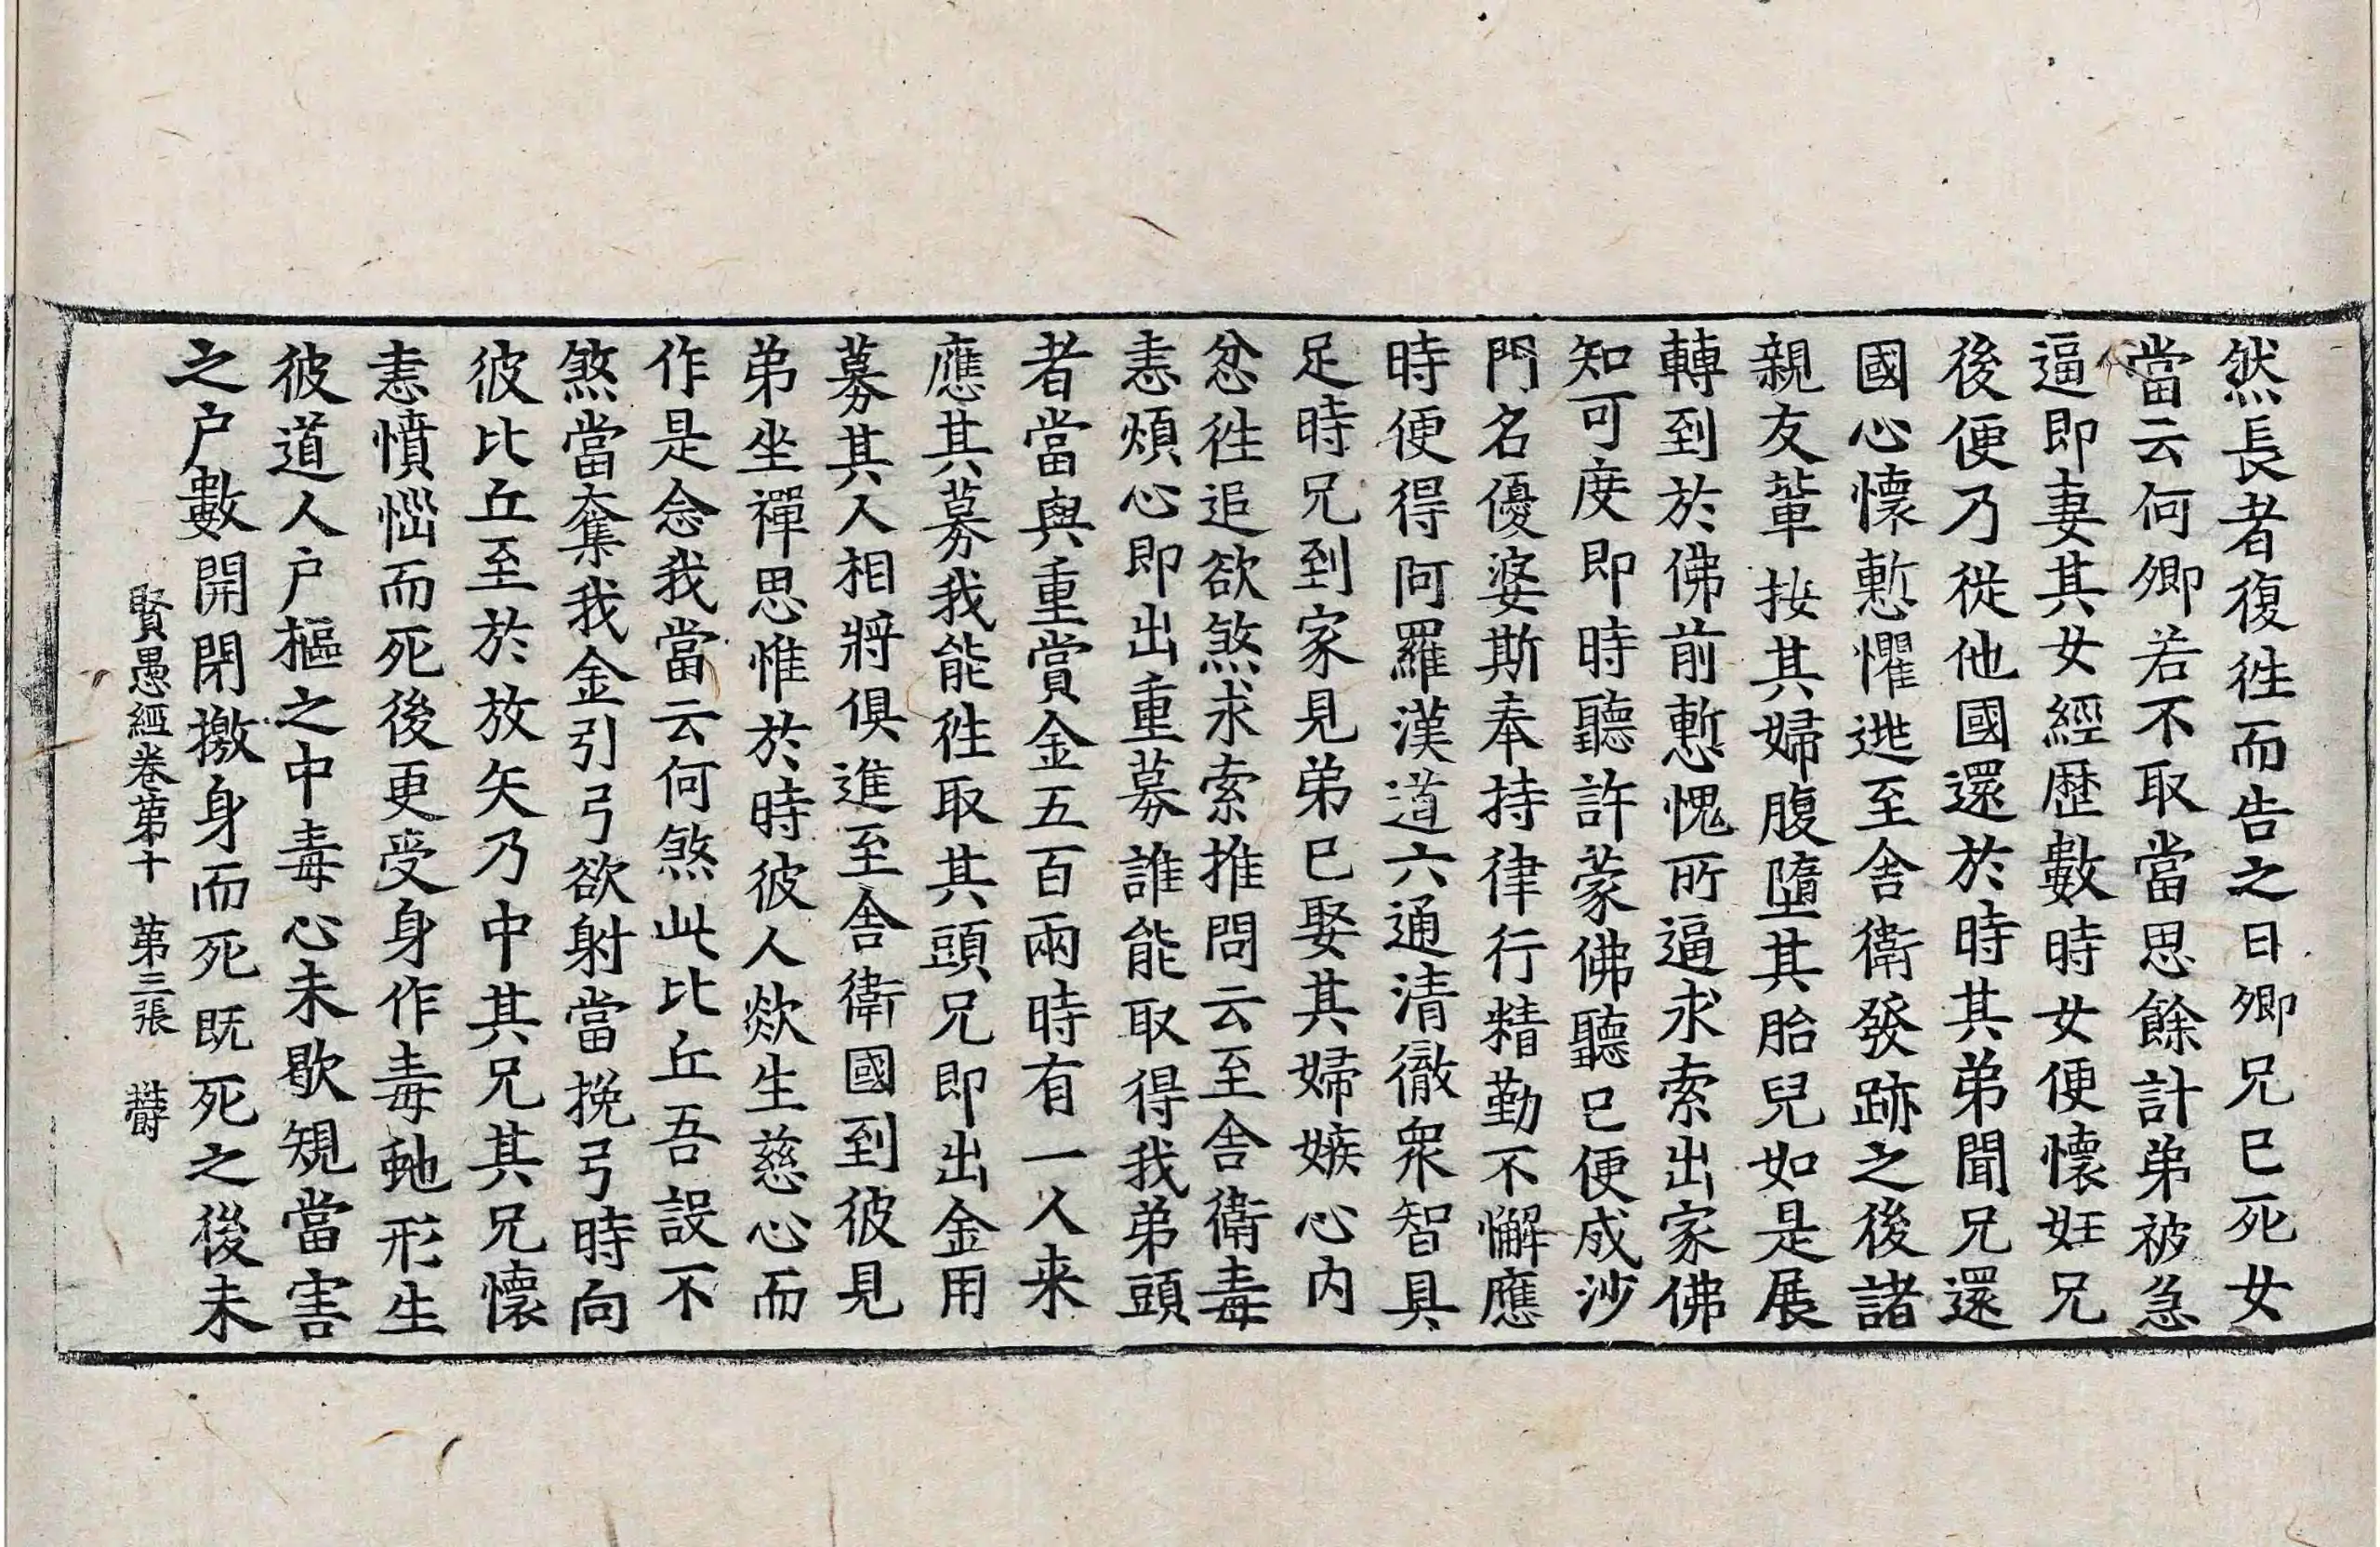 然長者復徃而告之曰卿兄已死女
當云何卿若不取當思餘計弟被急
逼即妻其女經歷數時女便懷妊兄
後便乃從他國還於時其弟聞兄還
國心懷慙懼逃至舍衛發跡之後諸
親友軰按其婦腹墮其胎兒如是展
轉到於佛前慙愧所逼求索出家佛
知可度即時聽許蒙佛聽已便成沙
門名優婆斯奉持律行精勤不懈應
時便得阿羅漢道六通清徹衆智具
足時兄到家見弟已娶其婦嫉心内
忿徃追欲煞求索推問云至舍衛毒
恚煩心即出重募誰能取得我弟頭
者當與重賞金五百兩時有一人来
應其募我能徃取其頭兄即出金用
募其人相將俱進至舍衛國到彼見
弟坐禪思惟於時彼人欻生慈心而
作是念我當云何煞此比丘吾設不
煞當奪我金引弓欲射當挽弓時向
彼比丘至於放矢乃中其兄其兄懷
恚憤惱而死後更受身作毒虵形生
彼道人户樞之中毒心未歇規當害
之户數開閉撽身而死既死之後未
賢愚經卷第十　第三張　欝